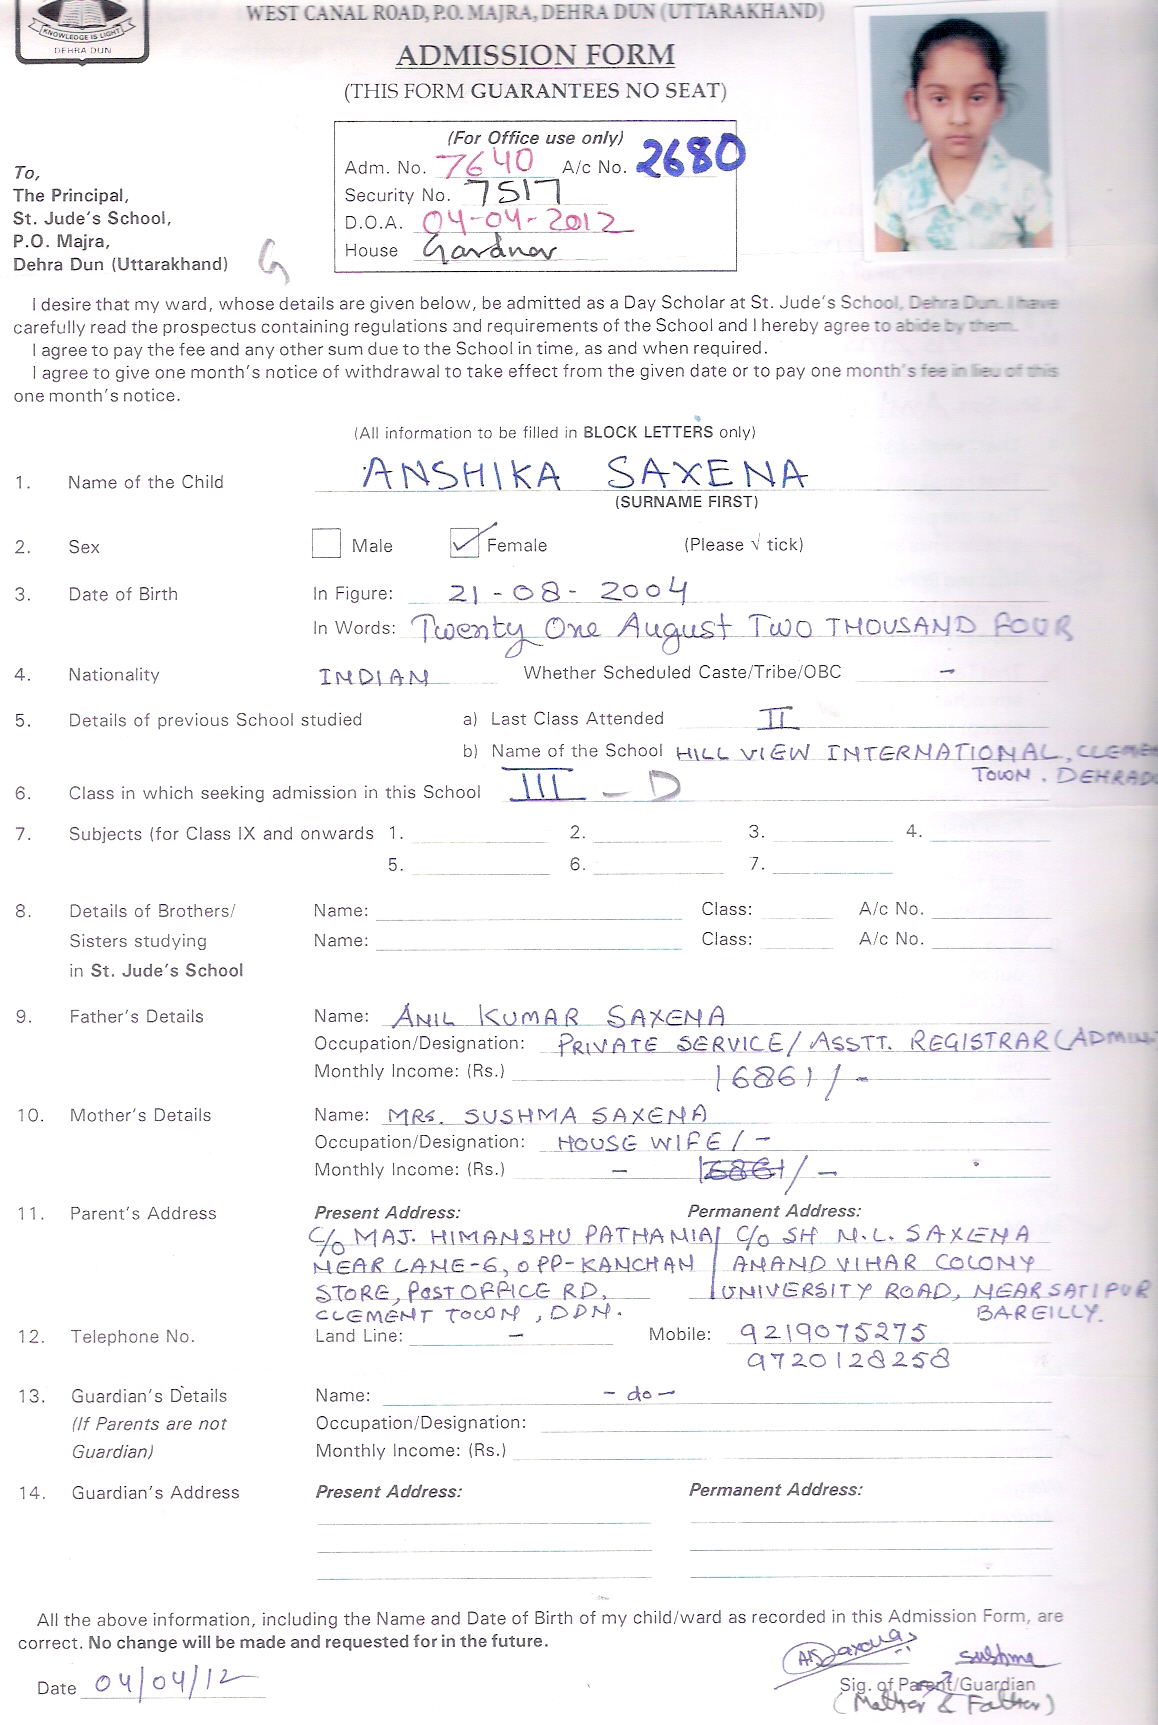 KNOWLEDGE IS LIGHT
DEHRA DUN
WEST CANAL ROAD, P.O. MAJRA, DEHRA DUN (UTTARAKHAND)
ADMISSION FORM
(THIS FORM GUARANTEES NO SEAT)
(For Office use only)
Adm. No. 7640 A/c No. 2680
Security No. 7517
D.O.A. 04-04-2012
House Gardner
To,
The Principal,
St. Jude's School,
P.O. Majra,
Dehra Dun (Uttarakhand) G
I desire that my ward, whose details are given below, be admitted as a Day Scholar at St. Jude's School, Dehra Dun. I have
carefully read the prospectus containing regulations and requirements of the School and I hereby agree to abide by them.
I agree to pay the fee and any other sum due to the School in time, as and when required.
I agree to give one month's notice of withdrawal to take effect from the given date or to pay one month's fee in lieu of this
one month's notice.
(All information to be filled in BLOCK LETTERS only)
1. Name of the Child ANSHIKA SAXENA
(SURNAME FIRST)
2. Sex Male ✓ Female (Please √ tick)
3. Date of Birth In Figure: 21-08-2004
In Words: Twenty One August Two THOUSAND FOUR
4. Nationality INDIAN Whether Scheduled Caste/Tribe/OBC -
5. Details of previous School studied a) Last Class Attended II
b) Name of the School HILL VIEW INTERNATIONAL, CLEME
TOWN. DEHRAD
6. Class in which seeking admission in this School III - D
7. Subjects (for Class IX and onwards 1. 2. 3. 4.
5. 6. 7.
8. Details of Brothers/ Name: Class: A/c No.
Sisters studying Name: Class: A/c No.
in St. Jude's School
9. Father's Details Name: ANIL KUMAR SAXENA
Occupation/Designation: PRIVATE SERVICE/ASSTT. REGISTRAR (ADMIN.
Monthly Income: (Rs.) 16861/-
10. Mother's Details Name: MRS. SUSHMA SAXENA
Occupation/Designation: HOUSE WIFE/-
Monthly Income: (Rs.) - 16861/-
11. Parent's Address Present Address: Permanent Address:
C/o MAJ. HIMANSHU PATHANIA/ C/o SH N.L. SAXENA
NEAR LANE-6, OPP-KANCHAN / ANAND VIHAR COLONY
STORE, POST OFFICE RD, UNIVERSITY ROAD, NEAR SATIPUR
CLEMENT TOWN, DDN. BAREILLY.
12. Telephone No. Land Line: - Mobile: 9219075275
9720128258
13. Guardian's Details Name: -do-
(If Parents are not Occupation/Designation:
Guardian) Monthly Income: (Rs.)
14. Guardian's Address Present Address: Permanent Address:
All the above information, including the Name and Date of Birth of my child/ward as recorded in this Admission Form, are
correct. No change will be made and requested for in the future.
AKSaxena Sushma
Date 04/04/12 Sig. of Parent/Guardian
(Mother & Father)